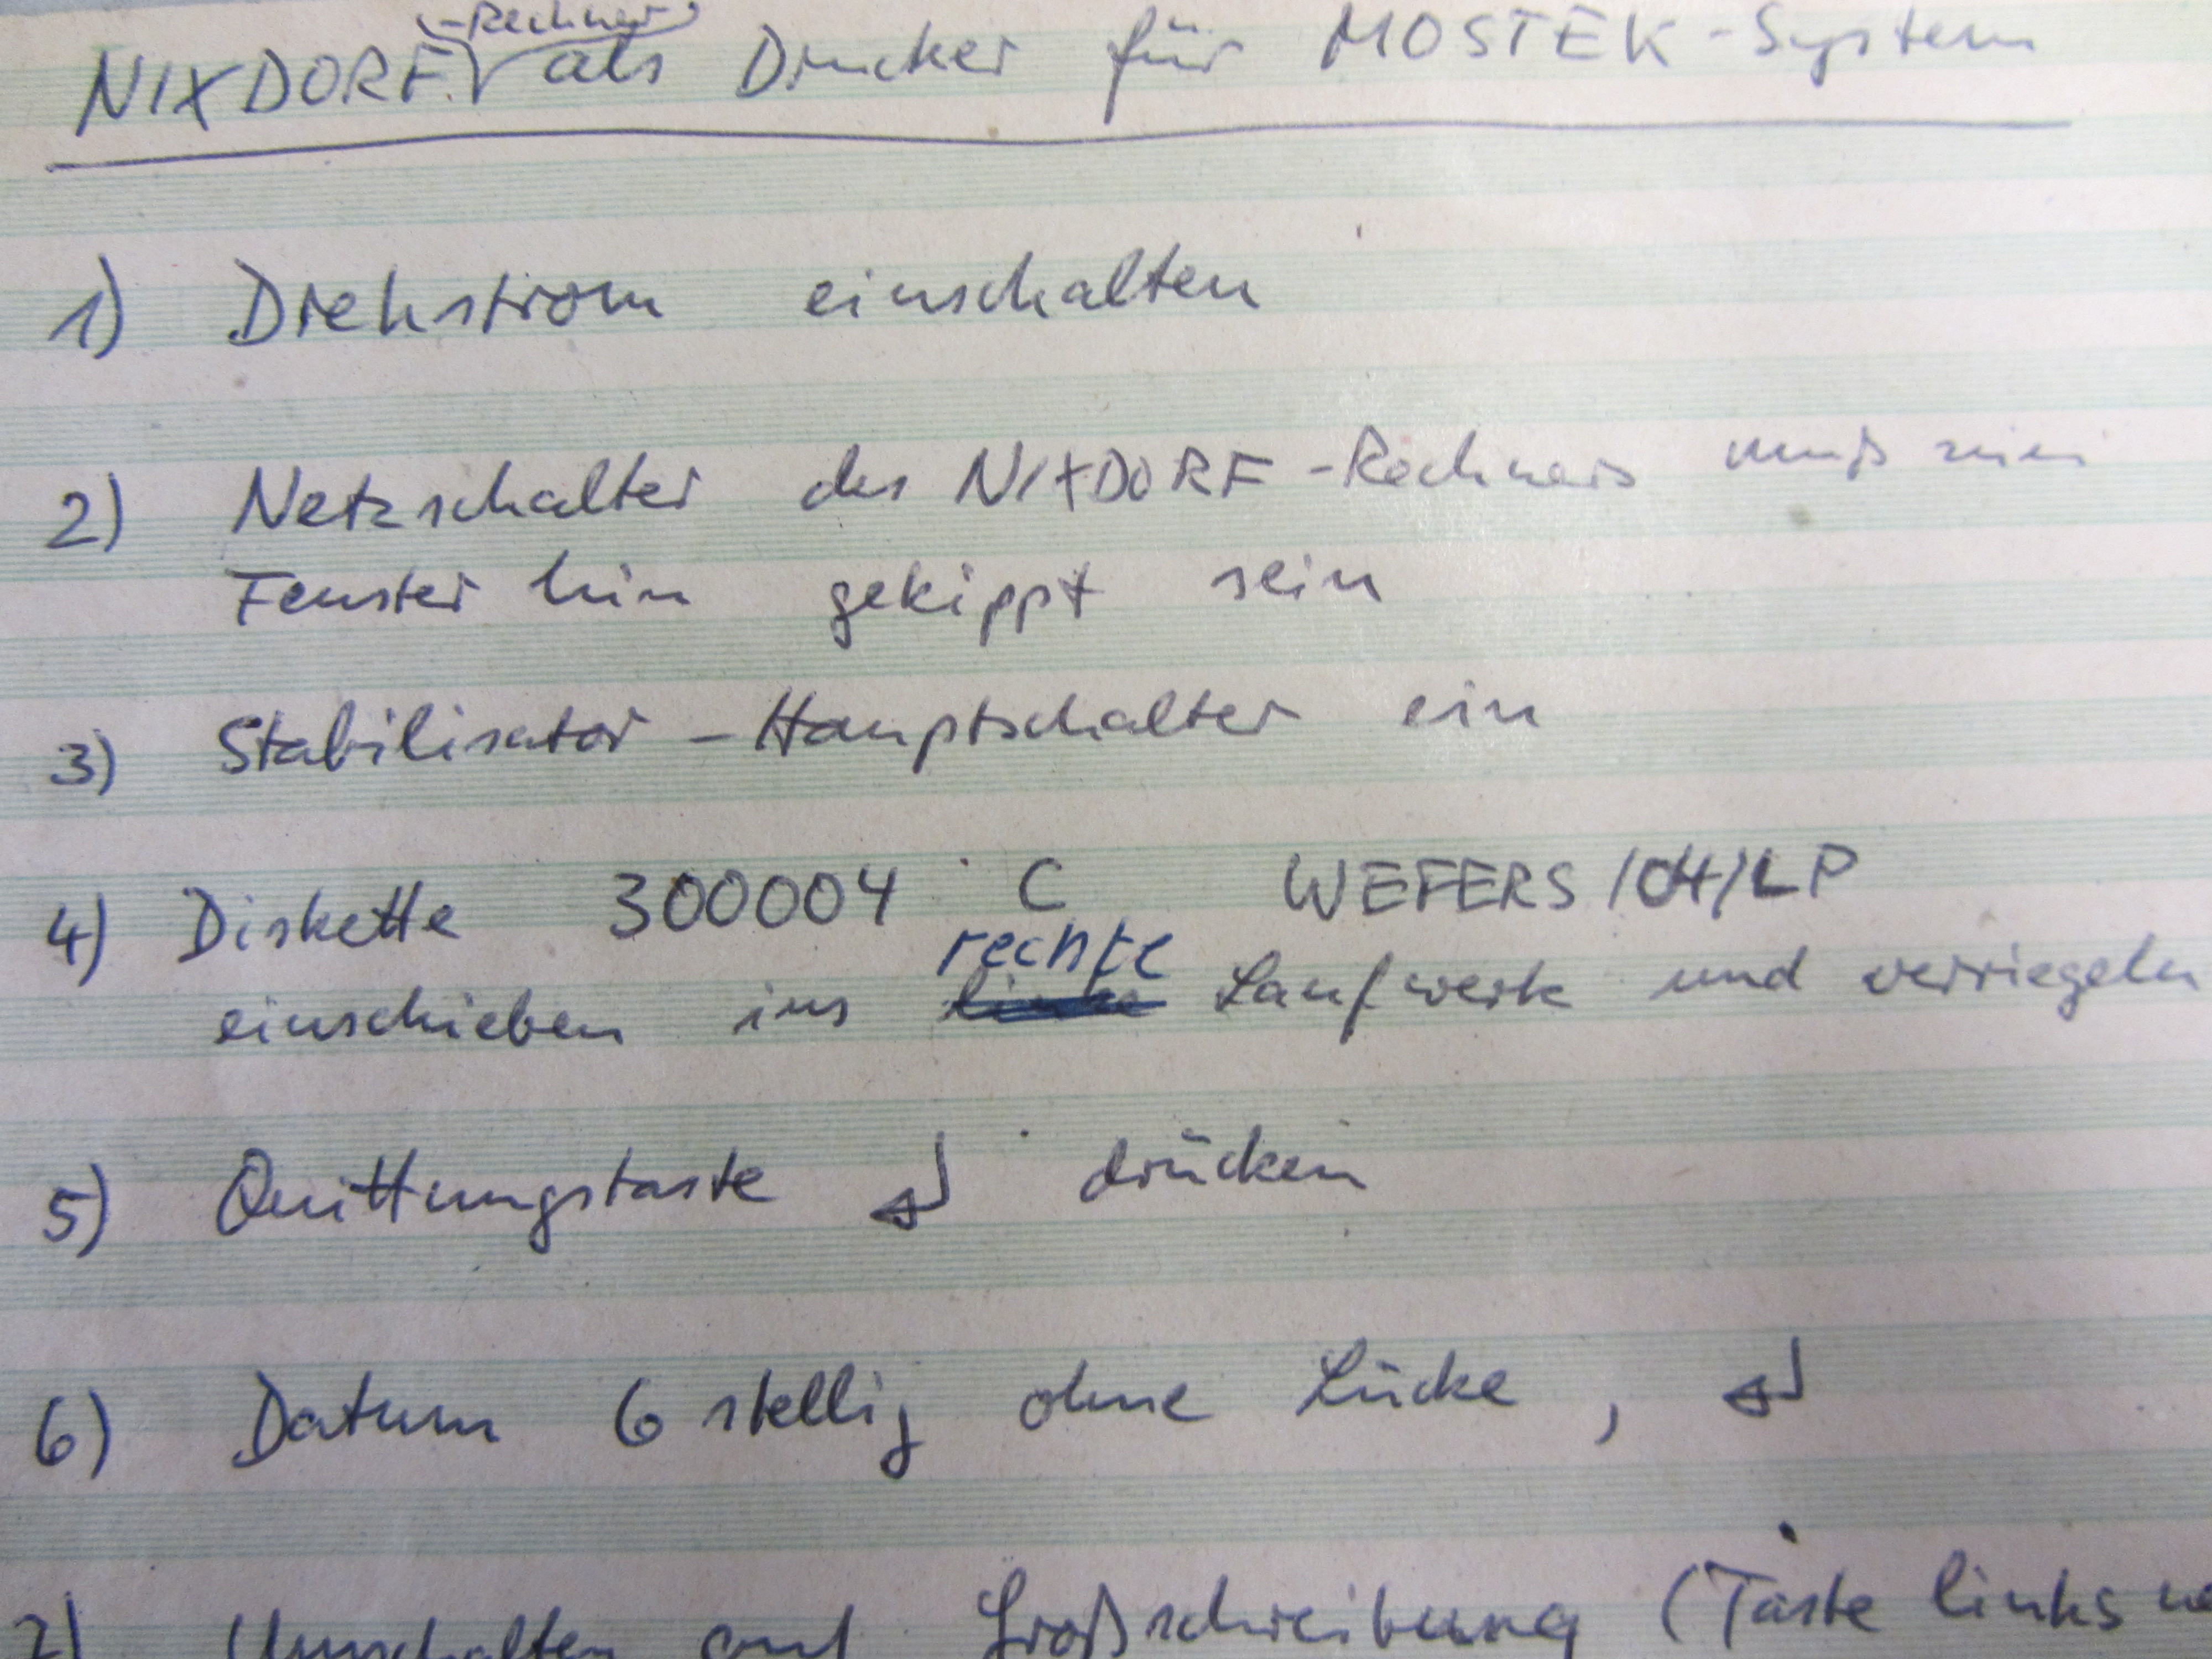 NIXDORF(-Rechner) als Drucker für MOSTEK-System
1) Drehstrom einschalten
2) Netzschalter des NIXDORF-Rechners muß zum
Fenster hin gekippt sein
3) Stabilisator-Hauptschalter ein
4) Diskette 30004 C WEFERS/04/LP
einschieben ins rechte Laufwerk und verriegeln
5) Quittungstaste ↲ drücken
6) Datum 6 stellig ohne Lücke, ↲
7) Umschalten auf Großschreibung (Taste links